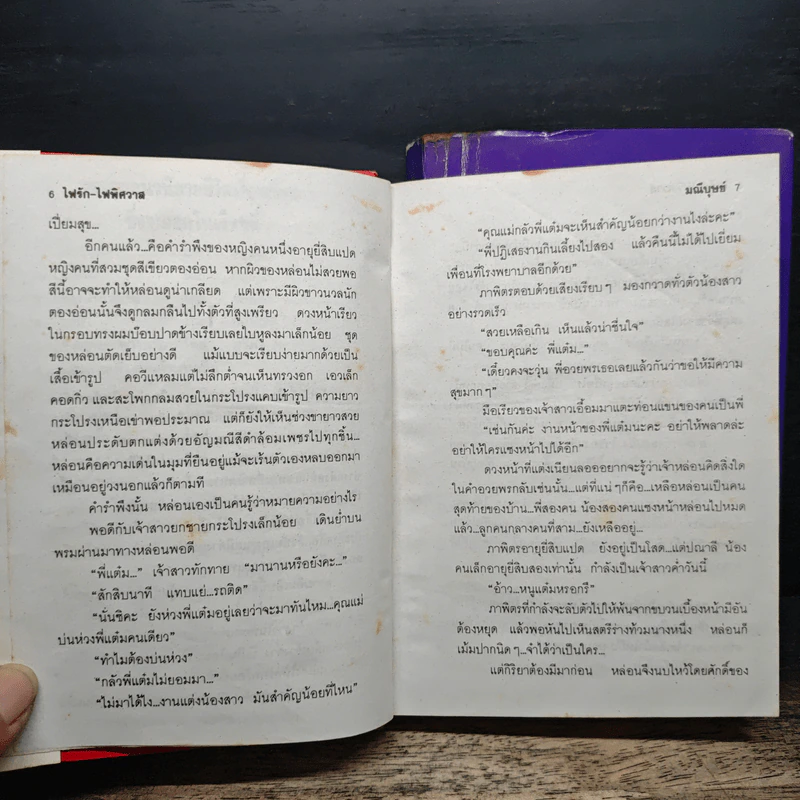 6 ไฟรัก-ไฟพิศวาส
เปี่ยมสุข...
อีกคนแล้ว...คือคำรำพึงของหญิงคนหนึ่งอายุยี่สิบแปด
หญิงคนที่สวมชุดสีเขียวตองอ่อน หากผิวของหล่อนไม่สวยพอ
สีนี้อาจจะทำให้หล่อนดูน่าเกลียด แต่เพราะมีผิวขาวนวลนัก
ตองอ่อนนั้นจึงดูกลมกลืนไปทั้งตัวที่สูงเพรียว ดวงหน้าเรียว
ในกรอบทรงผมบ๊อบปาดข้างเรียบเลยใบหูลงมาเล็กน้อย ชุด
ของหล่อนตัดเย็บอย่างดี แม้แบบจะเรียบง่ายมากด้วยเป็น
เสื้อเข้ารูป คอวีแหลมแต่ไม่ลึกต่ำจนเห็นทรวงอก เอวเล็ก
คอดกิ่ว และสะโพกกลมสวยในกระโปรงแคบเข้ารูป ความยาว
กระโปรงเหนือเข่าพอประมาณ แต่ก็ยังให้เห็นช่วงขายาวสวย
หล่อนประดับตกแต่งด้วยอัญมณีสีดำล้อมเพชรไปทุกชิ้น...
หล่อนคือความเด่นในมุมที่ยืนอยู่แม้จะเร้นตัวเองหลบออกมา
เหมือนอยู่วงนอกแล้วก็ตามที
คำรำพึงนั้น หล่อนเองเป็นคนรู้ว่าหมายความอย่างไร
พอดีกับเจ้าสาวยกชายกระโปรงเล็กน้อย เดินย่ำบน
พรมผ่านมาทางหล่อนพอดี
“พี่แต้ม...” เจ้าสาวทักทาย “มานานหรือยังคะ...”
“สักสิบนาที แทบแย่...รถติด”
“นั่นซิคะ ยังห่วงพี่แต้มอยู่เลยว่าจะมาทันไหม...คุณแม่
บ่นห่วงพี่แต้มคนเดียว”
“ทำไมต้องบ่นห่วง”
“กลัวพี่แต้มไม่ยอมมา...”
“ไม่มาได้ไง...งานแต่งน้องสาว มันสำคัญน้อยที่ไหน”
มณีบุษย์ 7
“คุณแม่กลัวพี่แต้มจะเห็นสำคัญน้อยกว่างานไงล่ะคะ”
“พี่ปฏิเสธงานกินเลี้ยงไปสอง แล้วคืนนี้ไม่ได้ไปเยี่ยม
เพื่อนที่โรงพยาบาลอีกด้วย”
ภาพิตรตอบด้วยเสียงเรียบๆ มองกวาดทั่วตัวน้องสาว
อย่างรวดเร็ว
“สวยเหลือเกิน เห็นแล้วน่าชื่นใจ”
“ขอบคุณค่ะ พี่แต้ม...”
“เดี๋ยวคงจะวุ่น พี่อวยพรเธอเลยแล้วกันว่าขอให้มีความ
สุขมากๆ”
มือเรียวของเจ้าสาวเอื้อมมาแตะท่อนแขนของคนเป็นพี่
“เช่นกันค่ะ งานหน้าของพี่แต้มนะคะ อย่าให้พลาดล่ะ
อย่าให้ใครแซงหน้าไปได้อีก”
ดวงหน้าที่แต่งเนียนลออยากจะรู้ว่าเจ้าหล่อนคิดสิ่งใด
ในคำอวยพรกลับเช่นนั้น...แต่ที่แน่ๆก็คือ...เหลือหล่อนเป็นคน
สุดท้ายของบ้าน...พี่สองคน น้องสองคนแซงหน้าหล่อนไปหมด
แล้ว...ลูกคนกลางคนที่สาม...ยังเหลืออยู่...
ภาพิตรอายุยี่สิบแปด ยังอยู่เป็นโสด...แต่ปณาลี น้อง
คนเล็กอายุยี่สิบสองเท่านั้น กำลังเป็นเจ้าสาวค่ำวันนี้
“อ้าว...หนูแต้มหรอกรึ”
ภาพิตรที่กำลังจะลับตัวไปให้พ้นจากขบวนเบื้องหน้ามีอัน
ต้องหยุด แล้วพอหันไปเห็นสตรีร่างท้วมนางหนึ่ง หล่อนก็
เม้มปากนิดๆ...จำได้ว่าเป็นใคร...
แต่กิริยาต้องมีมาก่อน หล่อนจึงนบไหว้โดยศักดิ์ของ